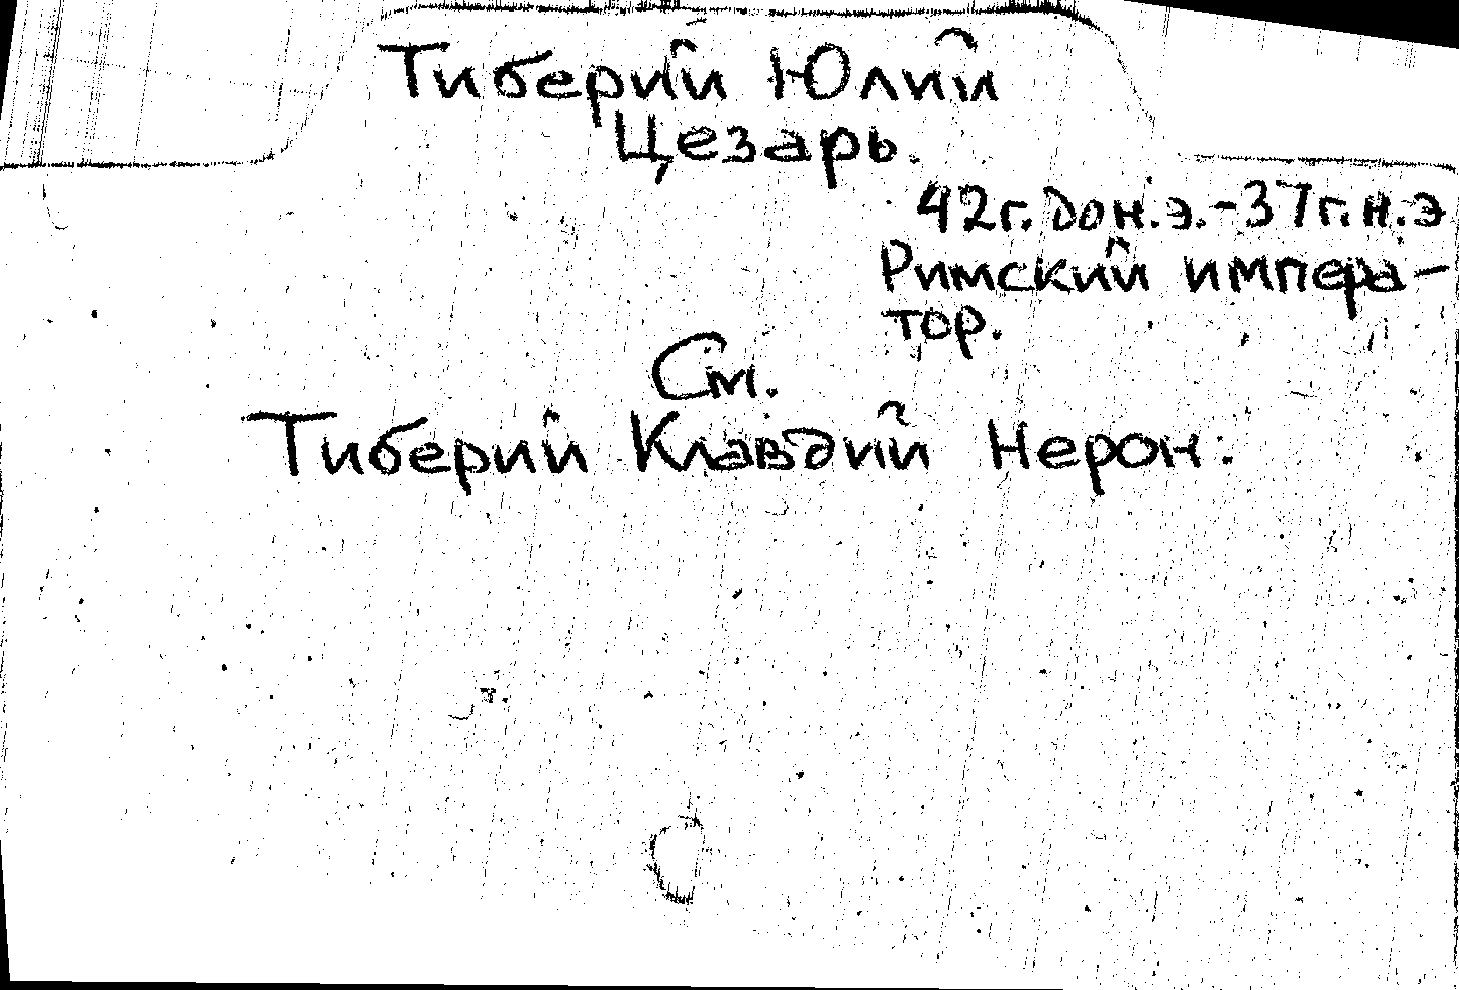 Тиберий Юлий
Цезарь.
42г. до н.э.-37г.н.э
Римский импера-
тор.
См.
Тиберий Клавдий Нерон.